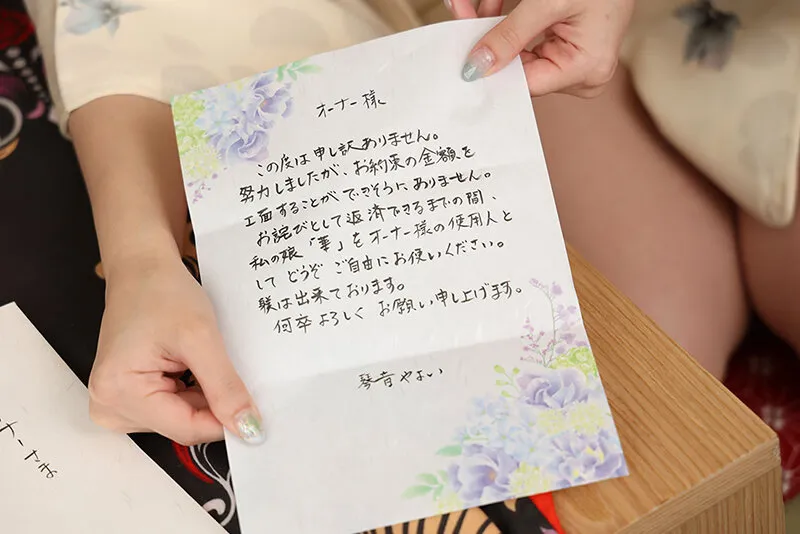 オーナー様
この度は申し訳ありません。
努力しましたが、お約束の金額を
工面することができそうにありません。
お詫びとして返済できるまでの間、
私の娘「華」をオーナー様の使用人と
して どうぞ ご自由にお使いください。
躾は出来ております。
何卒よろしく お願い申し上げます。
琴音やよい
ナーさま